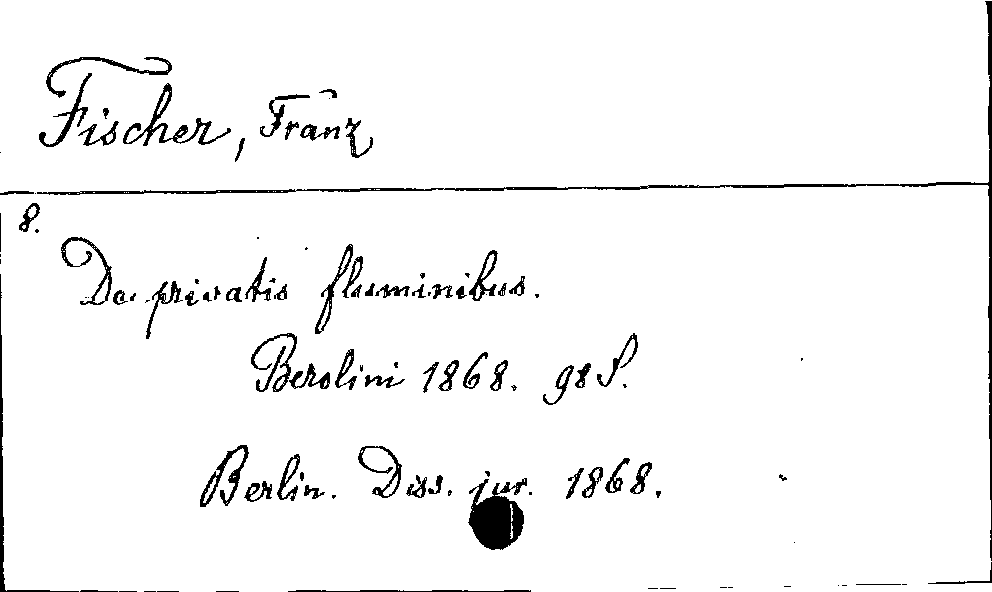 Fischer, Franz
8.
De privatis fluminibus.
Berolini 1868. 98 S.
Berlin. Diss. jur. 1868.